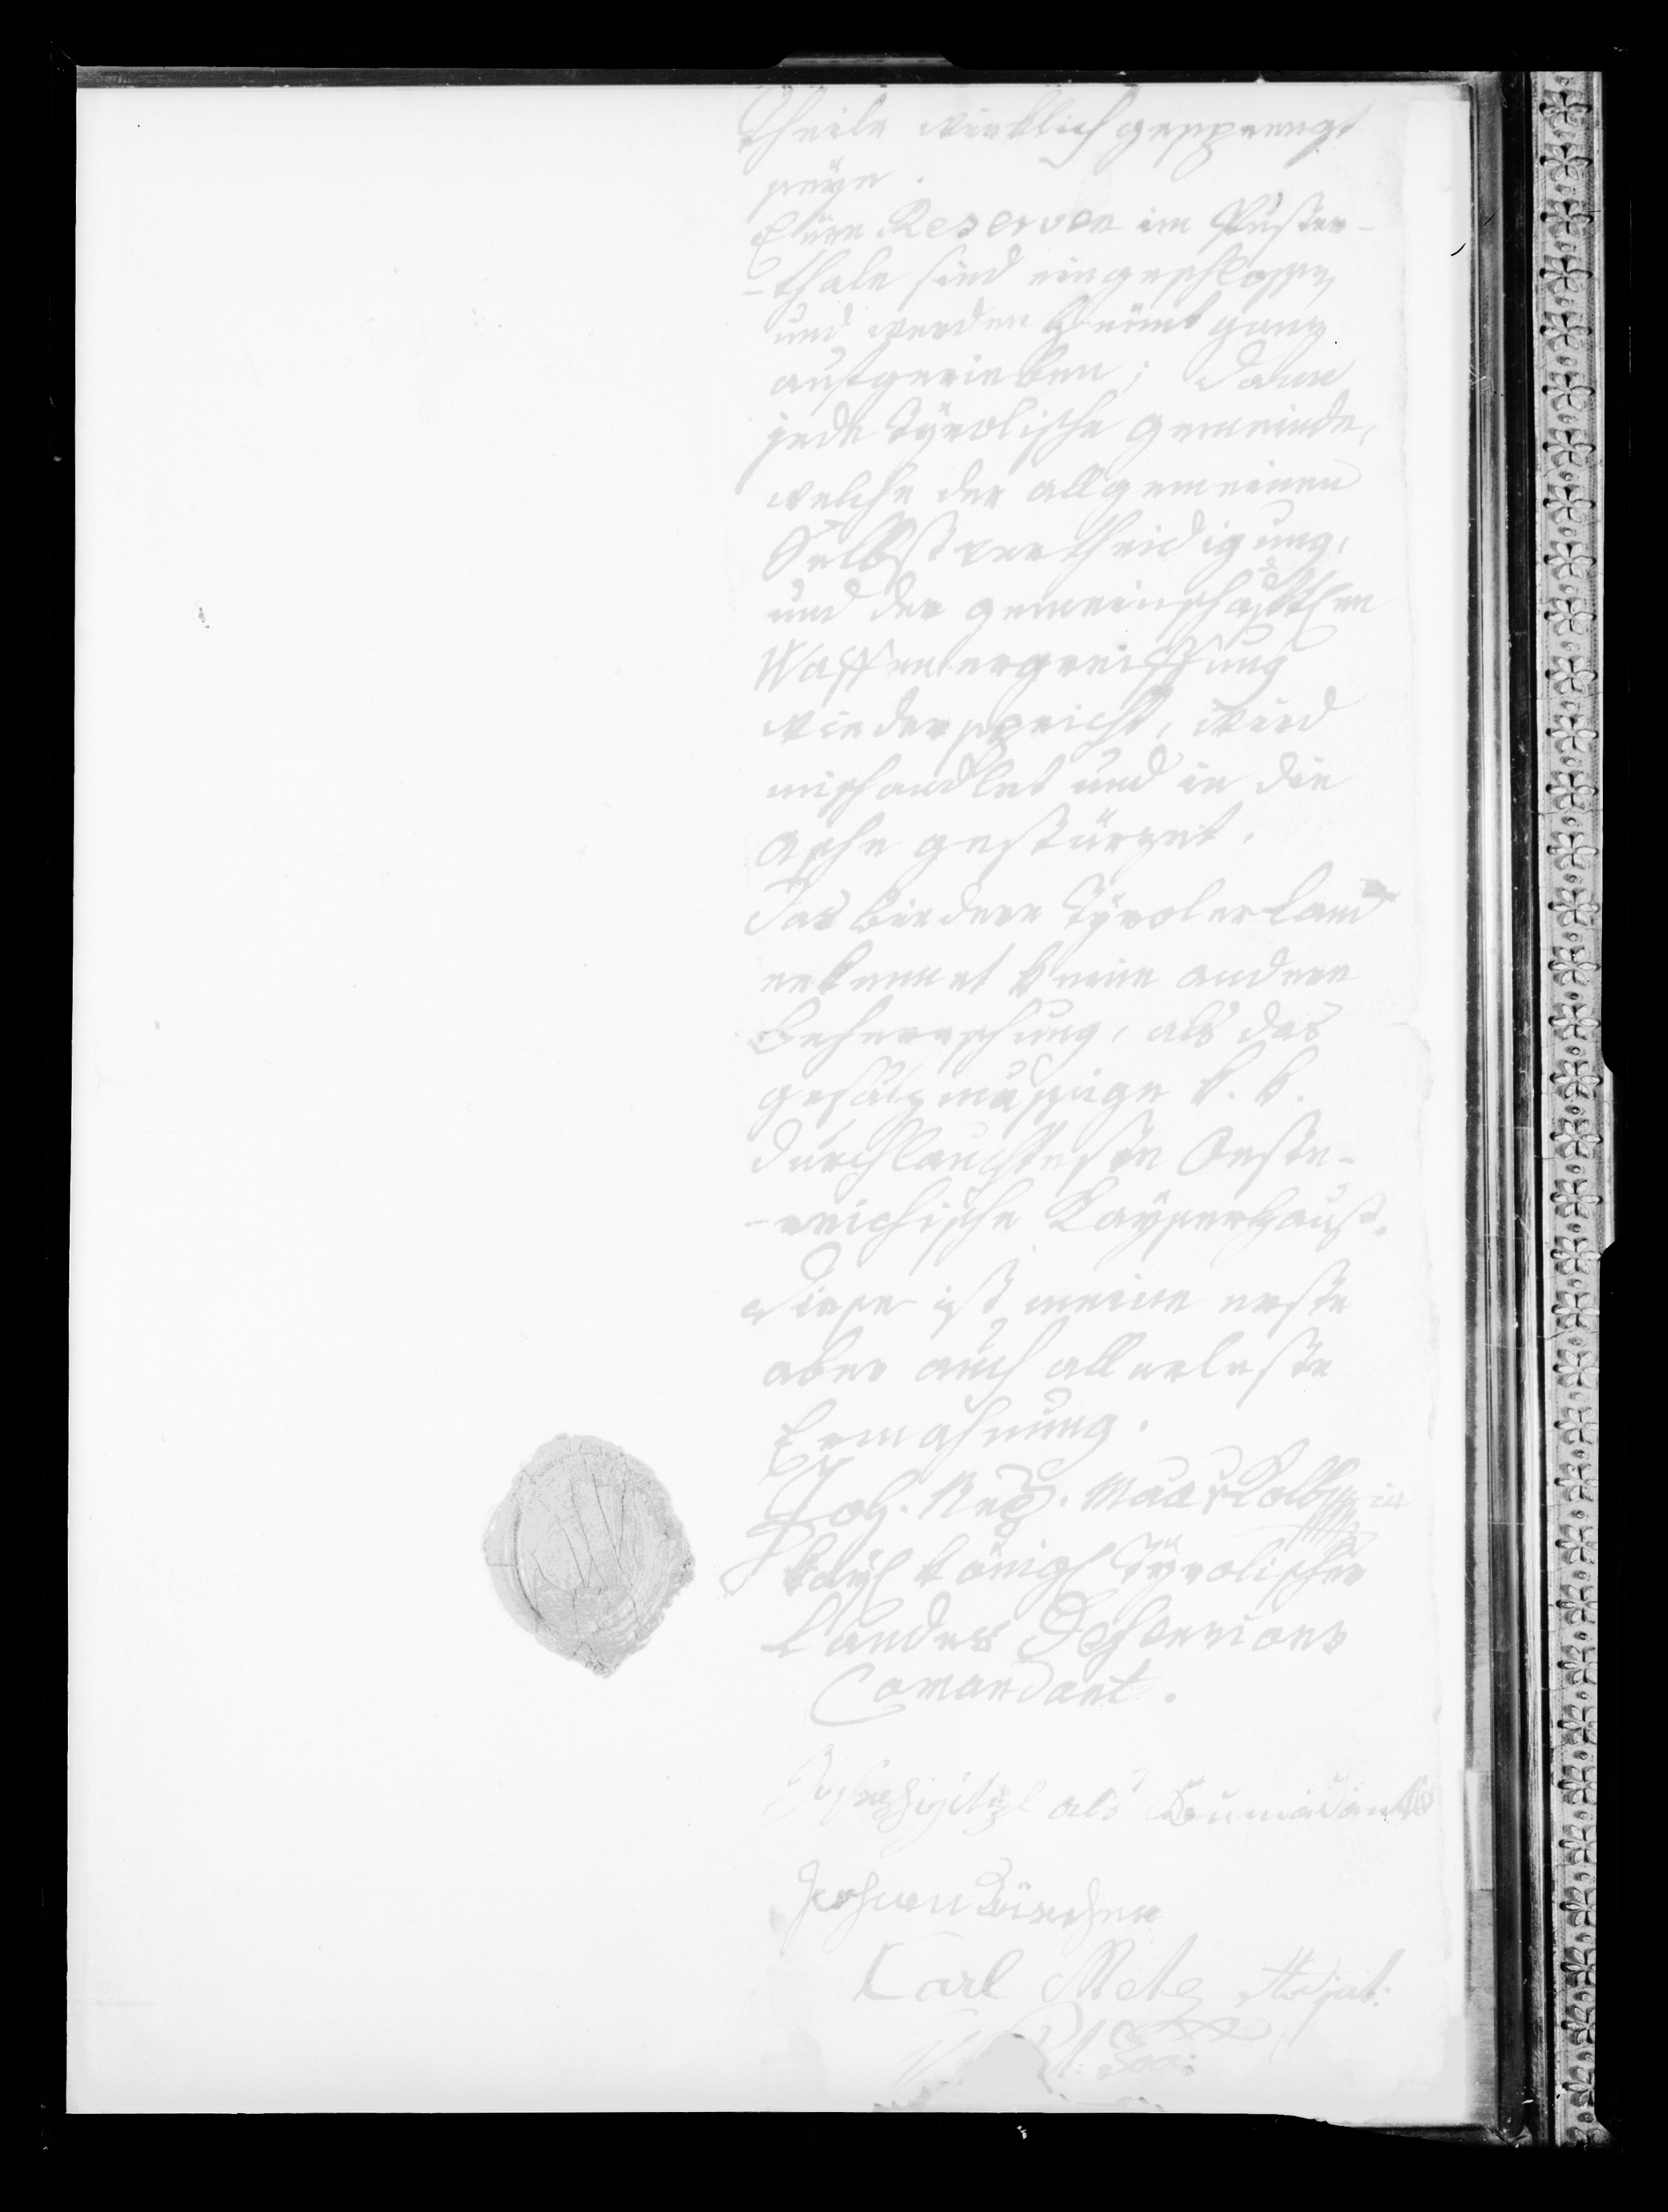 Theile wirklich gesprengt
seye.
Eüre Reserven im Puster-
-thale sind eingeschlossen
und werden heünt ganz
aufgerieben; dann
jede Tÿrolische Gemeinde,
welche der allgemeinen
Selbstvertheidigung,
und der gemeinschäftlichen
Waffenergreiffung
wiederspricht, wird
mishandlet und in die
Asche gestürzet.
Das biedere Tÿrolerland
erkennet keine andere
Beherrschung, als das
gesätzmässige k. k.
durchlauchteste Oeste-
-reichische Kaÿserhauß.
Diese ist meine erste
aber auch allerleste
Ermahnung.
Joh. Nep. Maria v Kolb
kaÿl königl Tÿrolischer
Landes Defensions
Comandant.
als
Johann
Carl Metz Adjut: